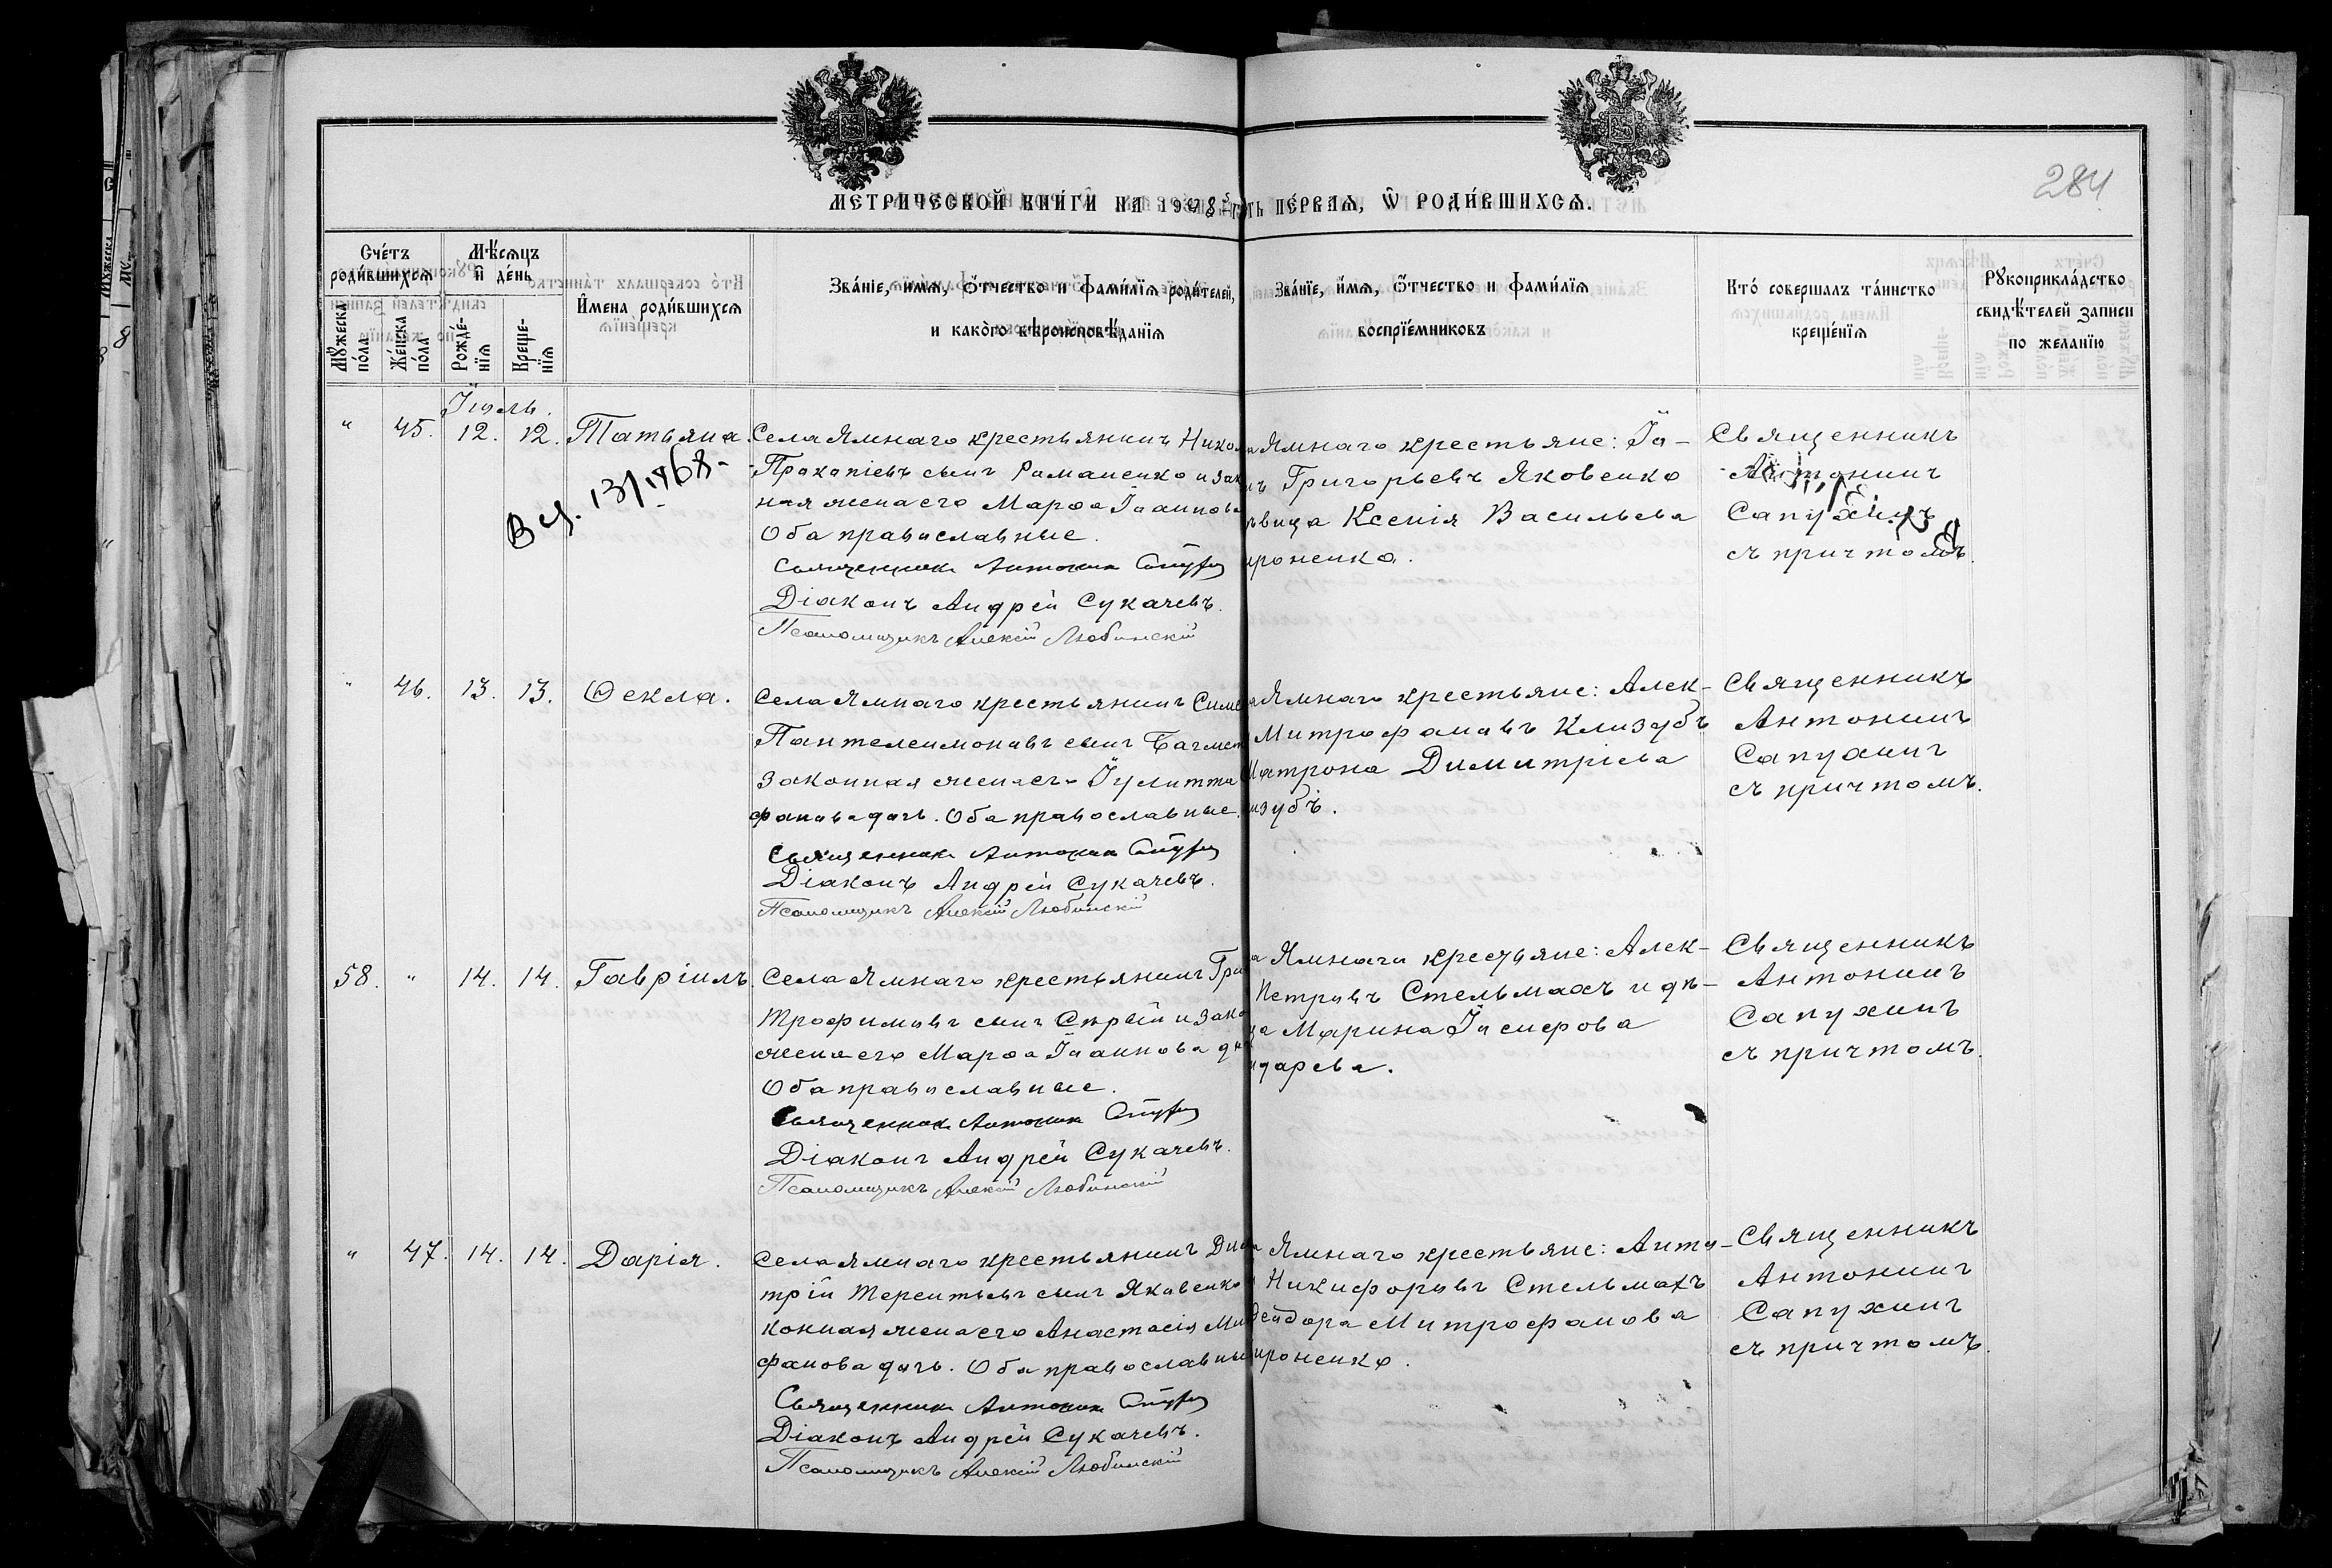 284
МЕТРИЧЕСКОЙ КНИГИ НА 1908 ПЕРВАЯ, Ѿ РОДИВШИХСЯ.
Счетъ родившихся
Мѣсяцъ и день
Имена родившихся
Званіе, имя, отчество и фамилія родителей,
и какого вѣроисповѣданія
Званіе, имя, отчество и фамилія
воспріемниковъ
Кто совершалъ таинство
крещенія
Рукоприкладство
свидѣтелей записи
по желанію
Мужеска пола
Женска пола
Рожденія
Крещенія
Іюль.
" 45. 12. 12. Татьяна.
Села Ямнаго крестьянинъ Нико
Прокопіевъ сынъ Романенко и зак
ная жена его Марѳа Іоаннова
Оба православные.
Священникъ Антонин
Діаконъ Андрей Сукачевъ.
Псаломщикъ Алексій Любинскій
13/1 1968
Ямнаго крестьяне: Іо-
Григорьевъ Яковенко
вица Ксенія Васильева
роненко.
Священникъ
Антонинъ
Сапухинъ
съ причтомъ.
" 46. 13. 13. Ѳекла.
Села Ямнаго крестьянинъ Симе
Пантелеимоновъ сынъ Багмет
законная жена его Іулитта
фанова дочь. Оба православные.
Священникъ Антонин
Діаконъ Андрей Сукачевъ.
Псаломщикъ Алексій Любинскій
Ямнаго крестьяне: Алек-
Митрофановъ Клизубъ
Матрона Димитріева
изубъ.
Священникъ
Антонинъ
Сапухинъ
съ причтомъ.
58. " 14. 14. Гавріилъ.
Села Ямнаго крестьянинъ Гри
Трофимовъ сынъ Сѣрый и зако
жена его Марѳа Іоаннова до
Оба православные.
Священникъ Антонин
Діаконъ Андрей Сукачевъ.
Псаломщикъ Алексій Любинскій
Ямнаго крестьяне: Алек-
Петровъ Стельмахъ и дѣ-
ца Марина Іосифова
дарева.
Священникъ
Антонинъ
Сапухинъ
съ причтомъ.
" 47. 14. 14. Дарія.
Села Ямнаго крестьянинъ Дими
трій Терентьевъ сынъ Яковенко
конная жена его Анастасія Мит
фанова дочь. Оба православны
Священникъ Антонин
Діаконъ Андрей Сукачевъ.
Псаломщикъ Алексій Любинскій
Ямнаго крестьяне: Анто-
Никифоровъ Стельмахъ
дора Митрофанова
роненко.
Священникъ
Антонинъ
Сапухинъ
съ причтомъ.